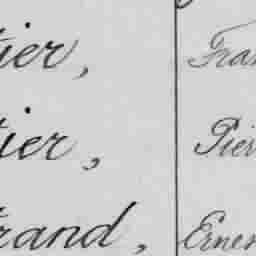 tier, Fran
tier, Pier
rand, Ernes